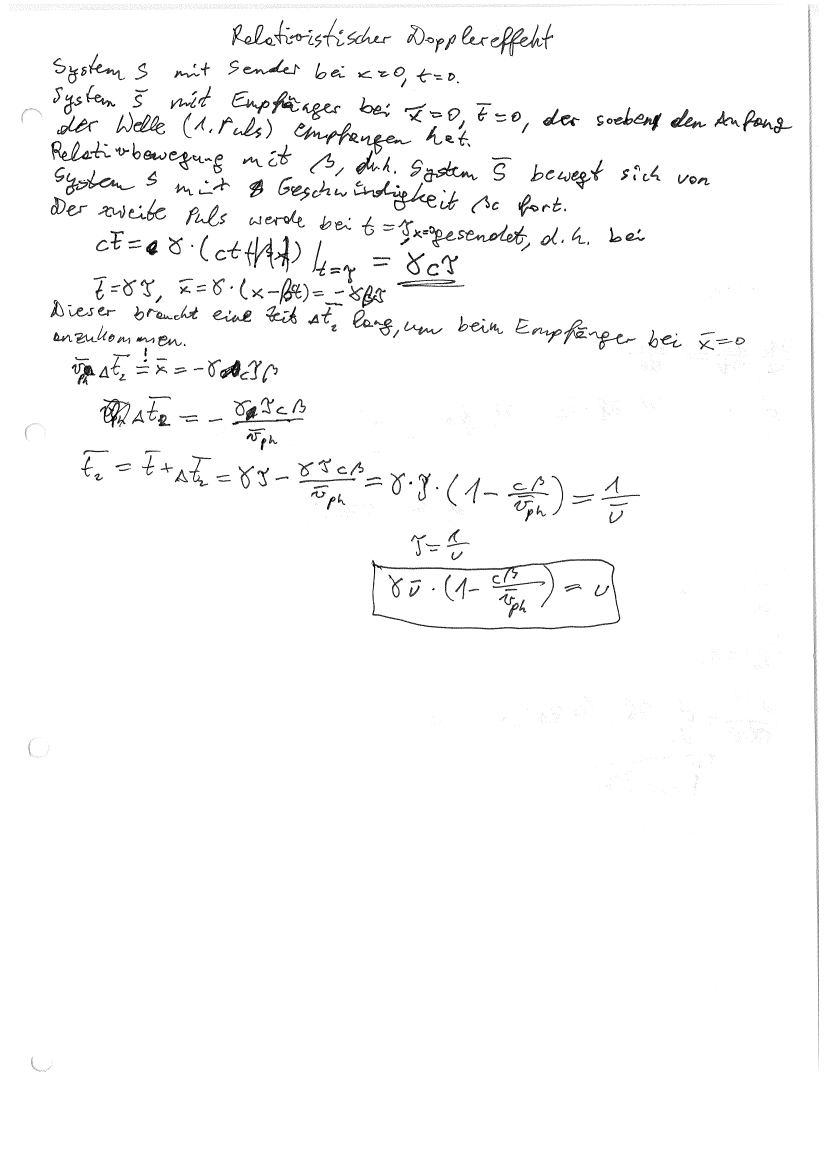 Relativistischer Dopplereffekt
System S mit Sender bei x=0, t=0.
System S̄ mit Empfänger bei x̄=0, t̄=0, der soeben den Anfang
der Welle (1. Puls) empfangen hat.
Relativbewegung mit β, d.h. System S̄ bewegt sich von
System S mit Geschwindigkeit βc fort.
Der zweite Puls werde bei t=τ, x=0 gesendet, d.h. bei
c t̄ = γ·(ct+βx)|t=τ = γcτ
t̄=γτ, x̄=γ·(x-βt)=-γβτ
Dieser braucht eine Zeit Δt̄₂ lang, um beim Empfänger bei x̄=0
anzukommen.
v̄ph Δt̄₂ =! x̄ = -γcτβ
Δt̄₂ = - γτcβ / v̄ph
t̄₂ = t̄+Δt̄₂ = γτ - γτcβ / v̄ph = γ·τ·(1 - cβ / v̄ph) = 1 / ῡ
τ = 1 / υ
γῡ·(1 - cβ / v̄ph) = υ